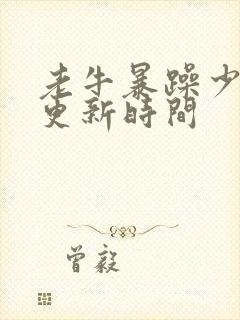 老牛暴躁少
更新時間
曾毅